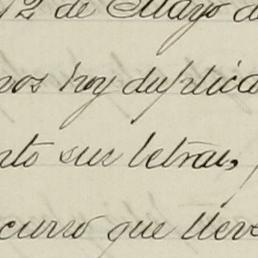 12 de Mayo d
nos hoy duplica
nto sus letras,
curso que lleve